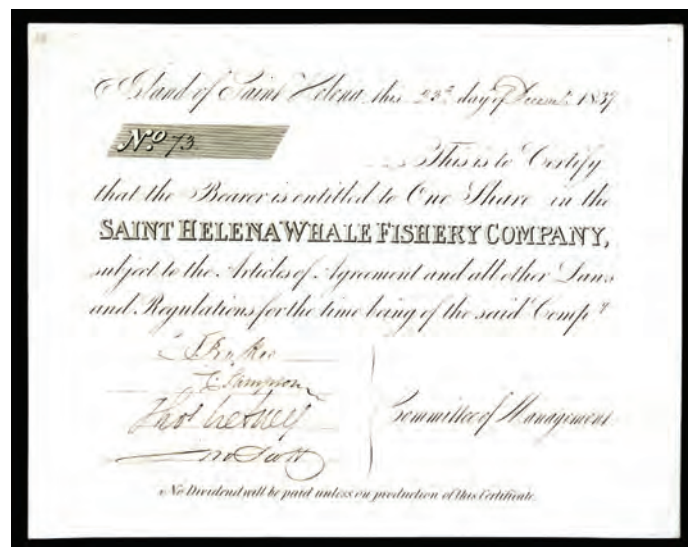 Island of Saint Helena this 23ᵈ day of Decemʳ 1837
Nº 73
This is to Certify
that the Bearer is entitled to One Share in the
SAINT HELENA WHALE FISHERY COMPANY,
subject to the Articles of Agreement and all other Laws
and Regulations for the time being of the said Compʸ
Scott
Committee of Management
No Dividend will be paid unless on production of this Certificate.